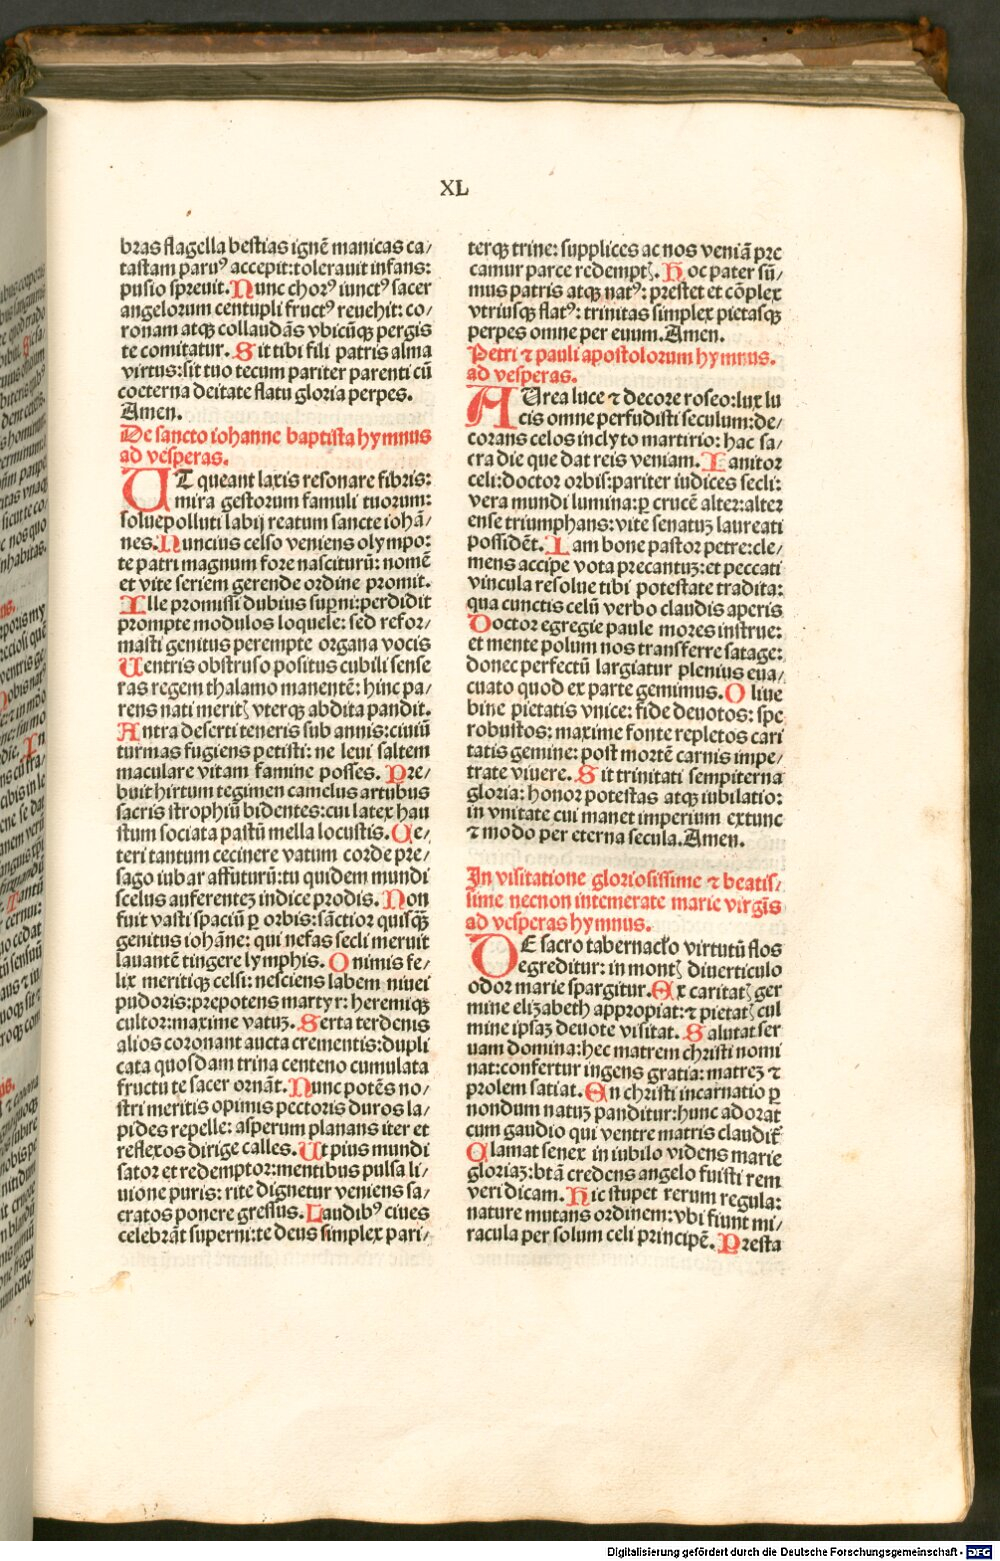 XL
bras flagella bestias ignē manicas ca/
tastam paruꝰ accepit:tolerauit infans:
pusio spreuit. Nunc chorꝰ iunctꝰ sacer
angelorum centupli fructꝰ reuehit: co/
ronam atqꝫ collaudās vbicūqꝫ pergis
te comitatur. Sit tibi fili patris alma
virtus:sit tuo tecum pariter parenti cū
coeterna deitate flatu gloria perpes.
Amen.
De sancto iohanne baptista hymnus
ad vesperas.
UT queant laxis resonare fibris:
mira gestorum famuli tuorum:
solue polluti labij reatum sancte iohā/
nes. Nuncius celso veniens olympo:
te patri magnum fore nasciturū: nomē
et vite seriem gerende ordine promit.
Ille promissi dubius suꝑni:perdidit
prompte modulos loquele: sed refor/
masti genitus perempte organa vocis
Uentris obstruso positus cubili sense
ras regem thalamo manentē: hinc pa/
rens nati meritꝭ vterqꝫ abdita pandit.
Antra deserti teneris sub annis:ciuiū
turmas fugiens petisti: ne leui saltem
maculare vitam famine posses. Pre/
buit hirtum tegimen camelus artubus
sacris strophiū bidentes:cui latex hau
stum sociata pastū mella locustis. Ce/
teri tantum cecinere vatum corde pre/
sago iubar affuturū:tu quidem mundi
scelus auferenteꝫ indice prodis. Non
fuit vasti spaciū ꝑ orbis: sāctior quisqꝫ̄
genitus iohāne: qui nefas secli meruit
lauantē tingere lymphis. O nimis fe/
lix meritiqꝫ celsi: nesciens labem niuei
pudoris:prepotens martyr: heremiqꝫ
cultor:maxime vatuꝫ. Serta terdenis
alios coronant aucta crementis:dupli
cata quosdam trina centeno cumulata
fructu te sacer ornāt. Nunc potēs no/
stri meritis opimis pectoris duros la/
pides repelle: asperum planans iter et
reflexos dirige calles. Ut pius mundi
sator et redemptor:mentibus pulsa li/
uione puris: rite dignetur veniens sa/
cratos ponere gressus. Laudibꝰ ciues
celebrāt superni:te deus simplex pari/
terqꝫ trine: supplices ac nos veniā pre
camur parce redemptꝭ. Hoc pater sū/
mus patris atqꝫ natꝰ: prestet et cōplex
vtriusqꝫ flatꝰ: trinitas simplex pietasqꝫ
perpes omne per euum. Amen.
Petri ⁊ pauli apostolorum hymnus.
ad vesperas.
AUrea luce ⁊ decore roseo:lux lu
cis omne perfudisti seculum:de/
corans celos inclyto martirio: hac sa/
cra die que dat reis veniam. Ianitor
celi:doctor orbis:pariter iudices secli:
vera mundi lumina:ꝑ crucē alter:alter
ense triumphans:vite senatuꝫ laureati
possidēt. Iam bone pastor petre:cle/
mens accipe vota precantuꝫ:et peccati
vincula resolue tibi potestate tradita:
qua cunctis celū verbo claudis aperis
Doctor egregie paule mores instrue:
et mente polum nos transferre satage:
donec perfectū largiatur plenius eua/
cuato quod ex parte gemimus. Oliue
bine pietatis vnice: fide deuotos: spe
robustos: maxime fonte repletos cari
tatis gemine: post mortē carnis impe/
trate viuere. Sit trinitati sempiterna
gloria: honor potestas atqꝫ iubilatio:
in vnitate cui manet imperium extunc
⁊ modo per eterna secula. Amen.
In visitatione gloriosissime ⁊ beatis/
sime necnon intemerate marie virgīs
ad vesperas hymnus.
DE sacro tabernaclo virtutū flos
egreditur: in montꝭ diuerticulo
odor marie spargitur. Ex caritatꝭ ger
mine elizabeth appropiat:⁊ pietatꝭ cul
mine ipsaꝫ deuote visitat. Salutat ser
uam domina:hec matrem christi nomi
nat:confertur ingens gratia: matreꝫ ⁊
prolem satiat. En christi incarnatio ꝑ
nondum natuꝫ panditur:hunc adorat
cum gaudio qui ventre matris claudit᷑
Clamat senex in iubilo videns marie
gloriaꝫ:btā credens angelo fuisti rem
veri dicam. Hic stupet rerum regula:
nature mutans ordinem:vbi fiunt mi/
racula per solum celi principē. Presta
Digitalisierung gefördert durch die Deutsche Forschungsgemeinschaft - DFG